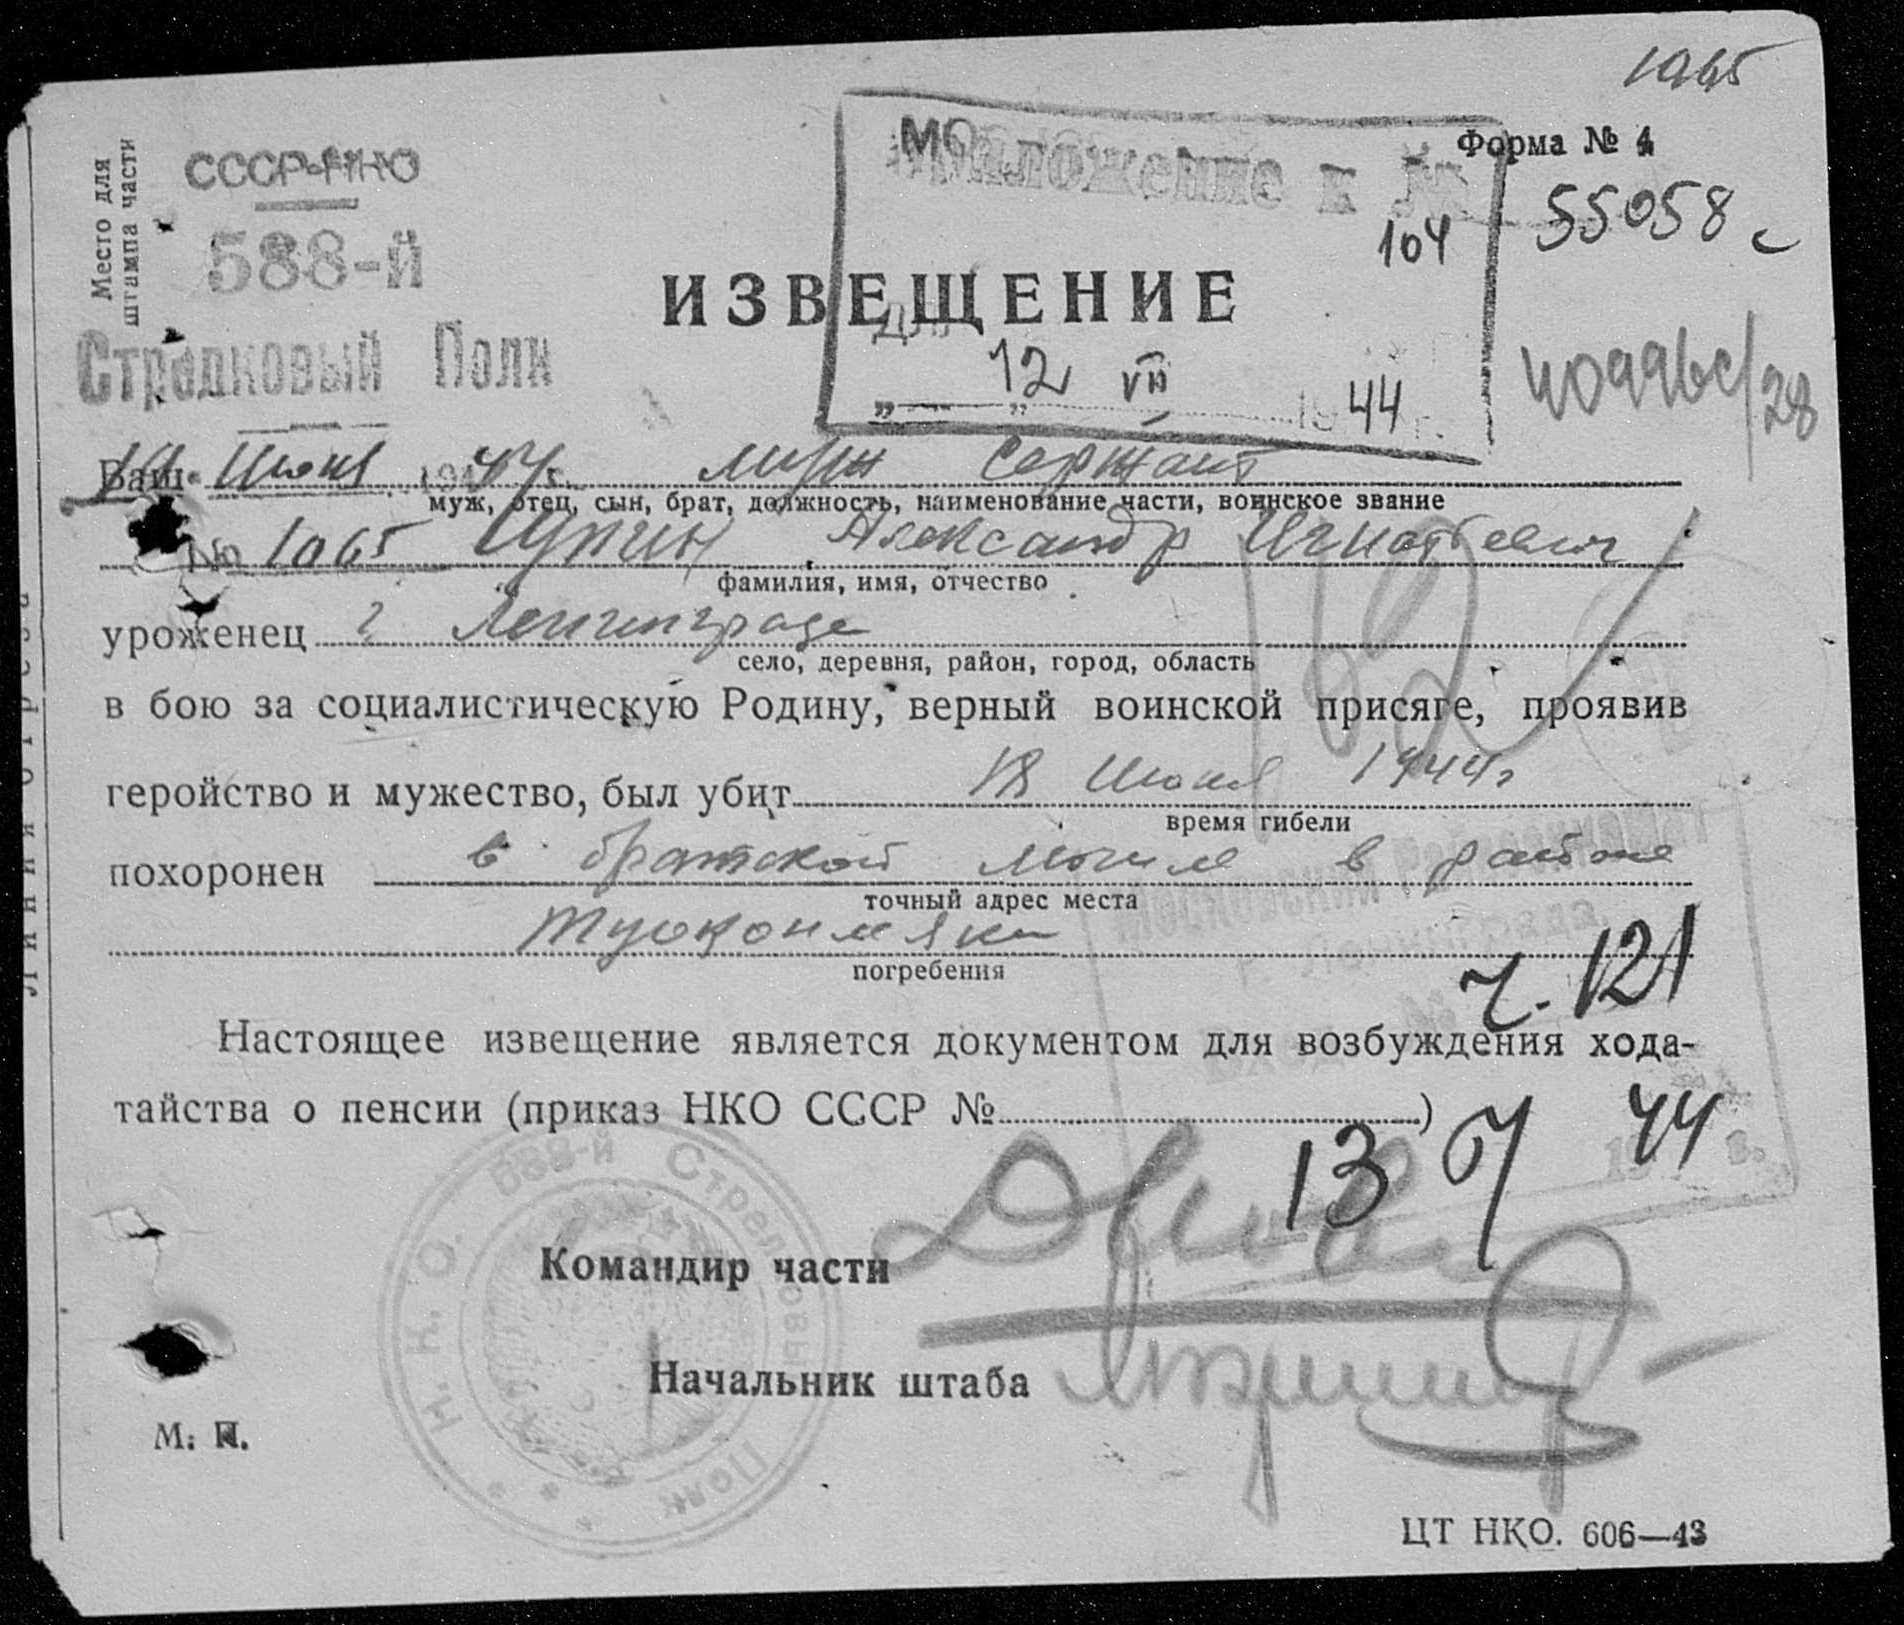 1065
Форма № 4
Место для
штампа части
СССР-НКО
588-й
Стрелковый Полк
Приложение к №
104
55058 с
ИЗВЕЩЕНИЕ
12 VII 1944 г.
40996с/28
Ваш Июня 1944 г. мл. сержант
муж, отец, сын, брат, должность, наименование части, воинское звание
№ 1065 Александр Игнатьевич
фамилия, имя, отчество
уроженец г Ленинграда
село, деревня, район, город, область
в бою за социалистическую Родину, верный воинской присяге, проявив
геройство и мужество, был убит 18 Июня 1944 г
время гибели
похоронен в братской могиле в районе
точный адрес места
погребения
ч. 121
Настоящее извещение является документом для возбуждения хода-
тайства о пенсии (приказ НКО СССР № )
13 44
Командир части
Начальник штаба
Н. К. О. 588-й Стрелковый Полк
М. П.
ЦТ НКО. 606—43
линия отреза